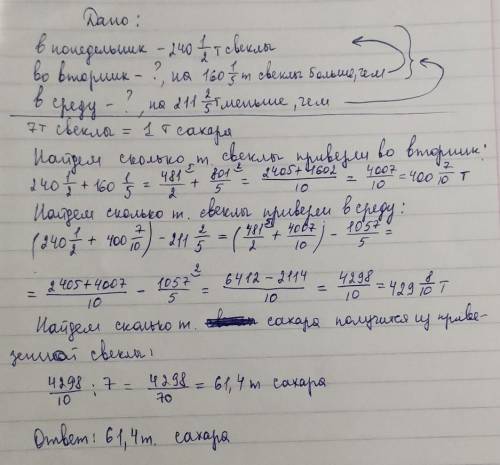 Дано:
в понедельник - 240 1/2 т свеклы
во вторник - ?, на 160 1/5 т свеклы больше, чем
в среду - ?, на 211 2/5 т меньше, чем
7т свеклы = 1 т сахара
Найдем сколько т. свеклы привезли во вторник:
240 1/2 + 160 1/5 = 481/2 + 801/5 = 2405+1602/10 = 4007/10 = 400 7/10 т
Найдем сколько т. свеклы привезли в среду:
(240 1/2 + 400 7/10) - 211 2/5 = (481/2 + 4007/10) - 1057/5 =
= 2405+4007/10 - 1057/5 = 6412-2114/10 = 4298/10 = 429 8/10 т
Найдем сколько т. сахара получится из приве-
зенной свеклы:
4298/10 : 7 = 4298/70 = 61,4 т сахара
Ответ: 61,4 т. сахара